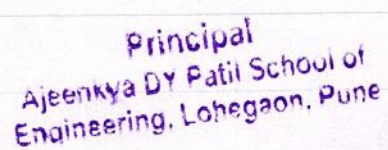 Principal
Ajeenkya DY Patil School of
Engineering, Lohegaon, Pune